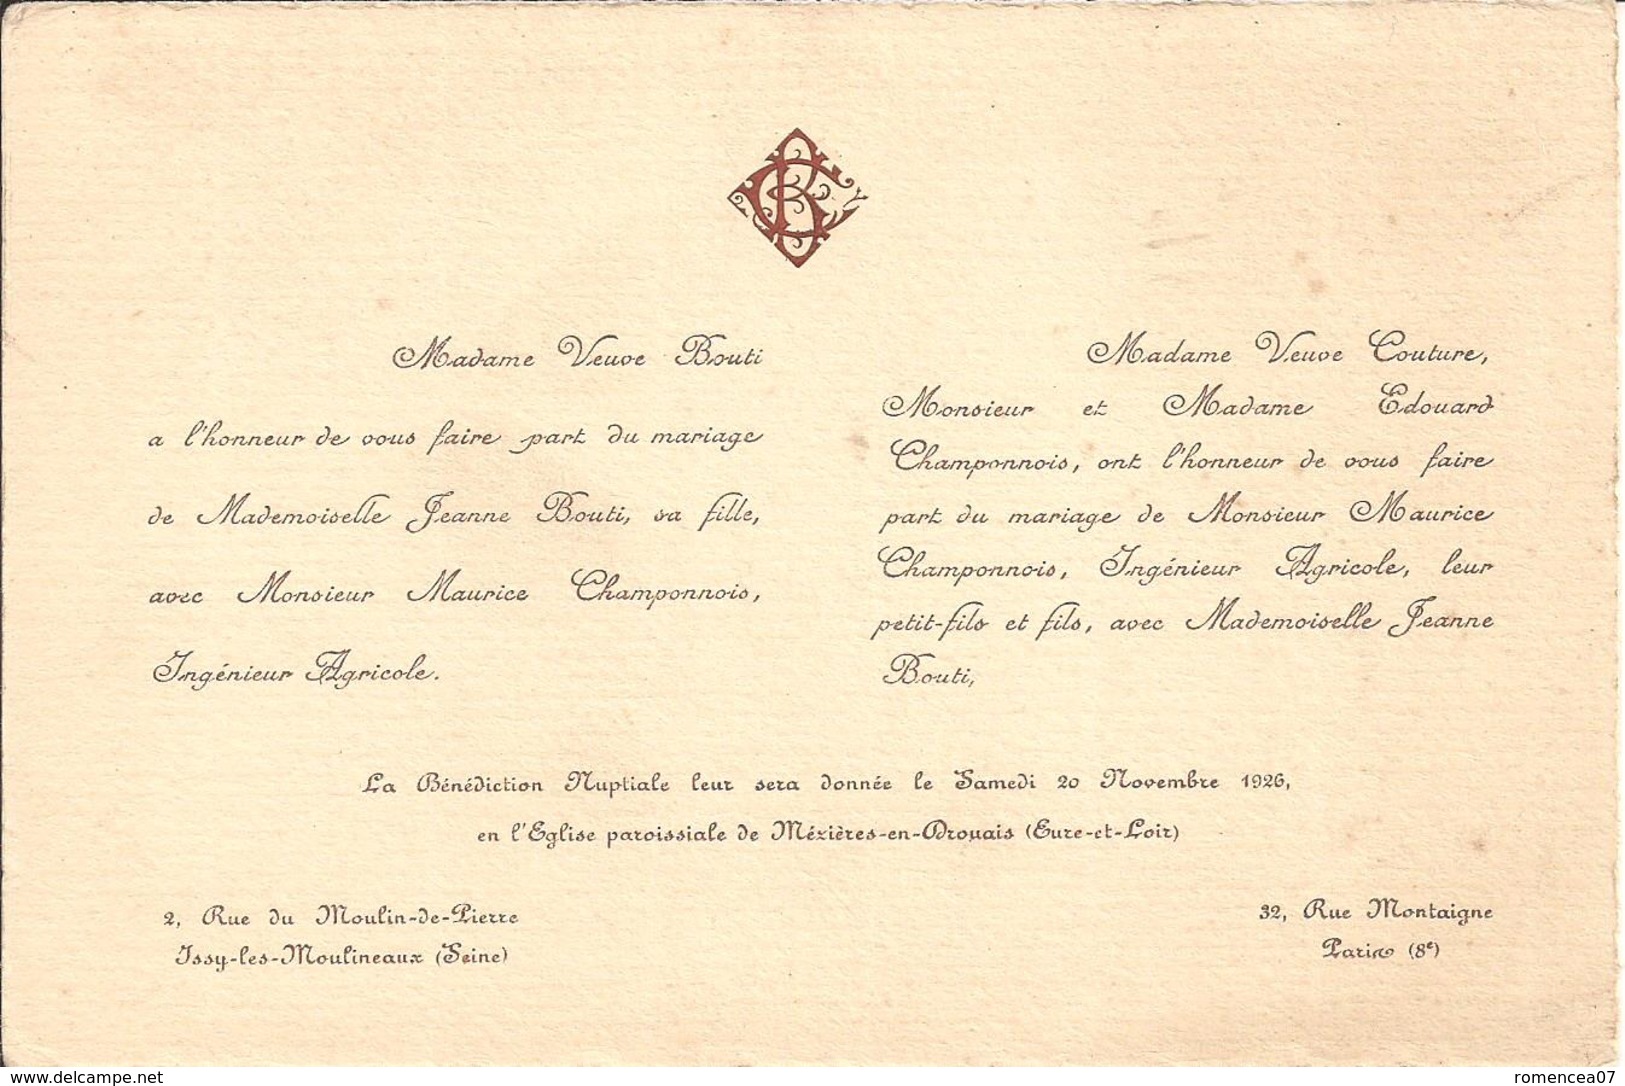 Madame Veuve Bouti
a l'honneur de vous faire part du mariage
de Mademoiselle Jeanne Bouti, sa fille,
avec Monsieur Maurice Champonnois,
Ingénieur Agricole.
Madame Veuve Couture,
Monsieur et Madame Edouard
Champonnois, ont l'honneur de vous faire
part du mariage de Monsieur Maurice
Champonnois, Ingénieur Agricole, leur
petit-fils et fils, avec Mademoiselle Jeanne
Bouti,
La Bénédiction Nuptiale leur sera donnée le Samedi 20 Novembre 1926,
en l'Eglise paroissiale de Mézières-en-Drouais (Eure-et-Loir)
2, Rue du Moulin-de-Pierre
Issy-les-Moulineaux (Seine)
32, Rue Montaigne
Paris (8e)
www.delcampe.net
romencea07